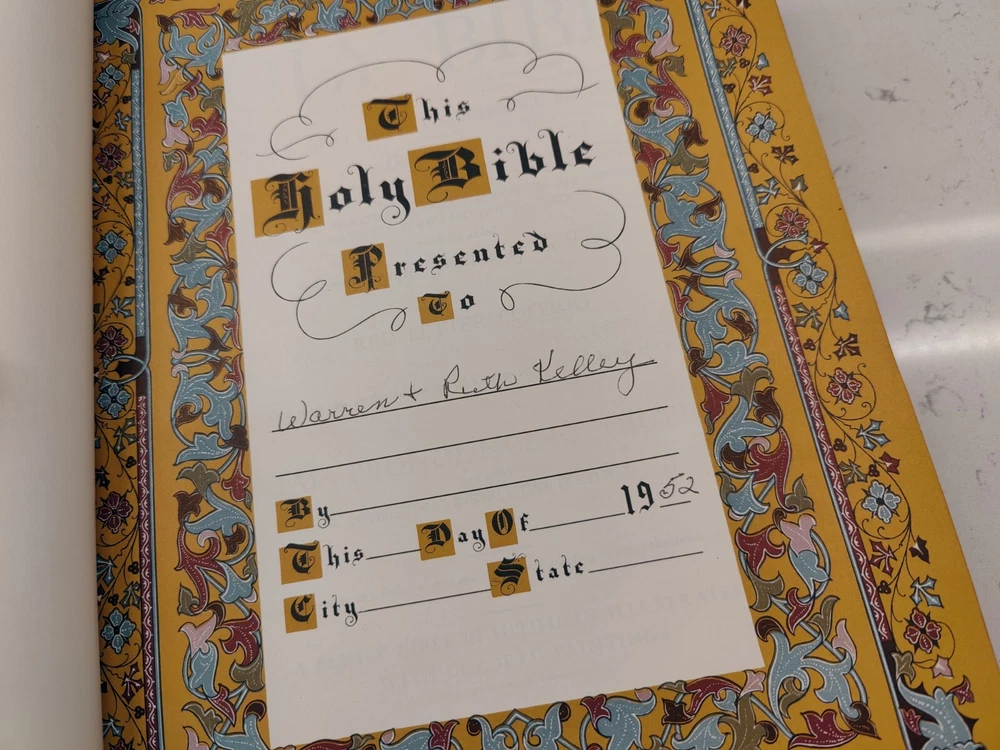 This
Holy Bible
Presented
To
Warren + Ruth Kelley
By
This Day Of 1952
City State